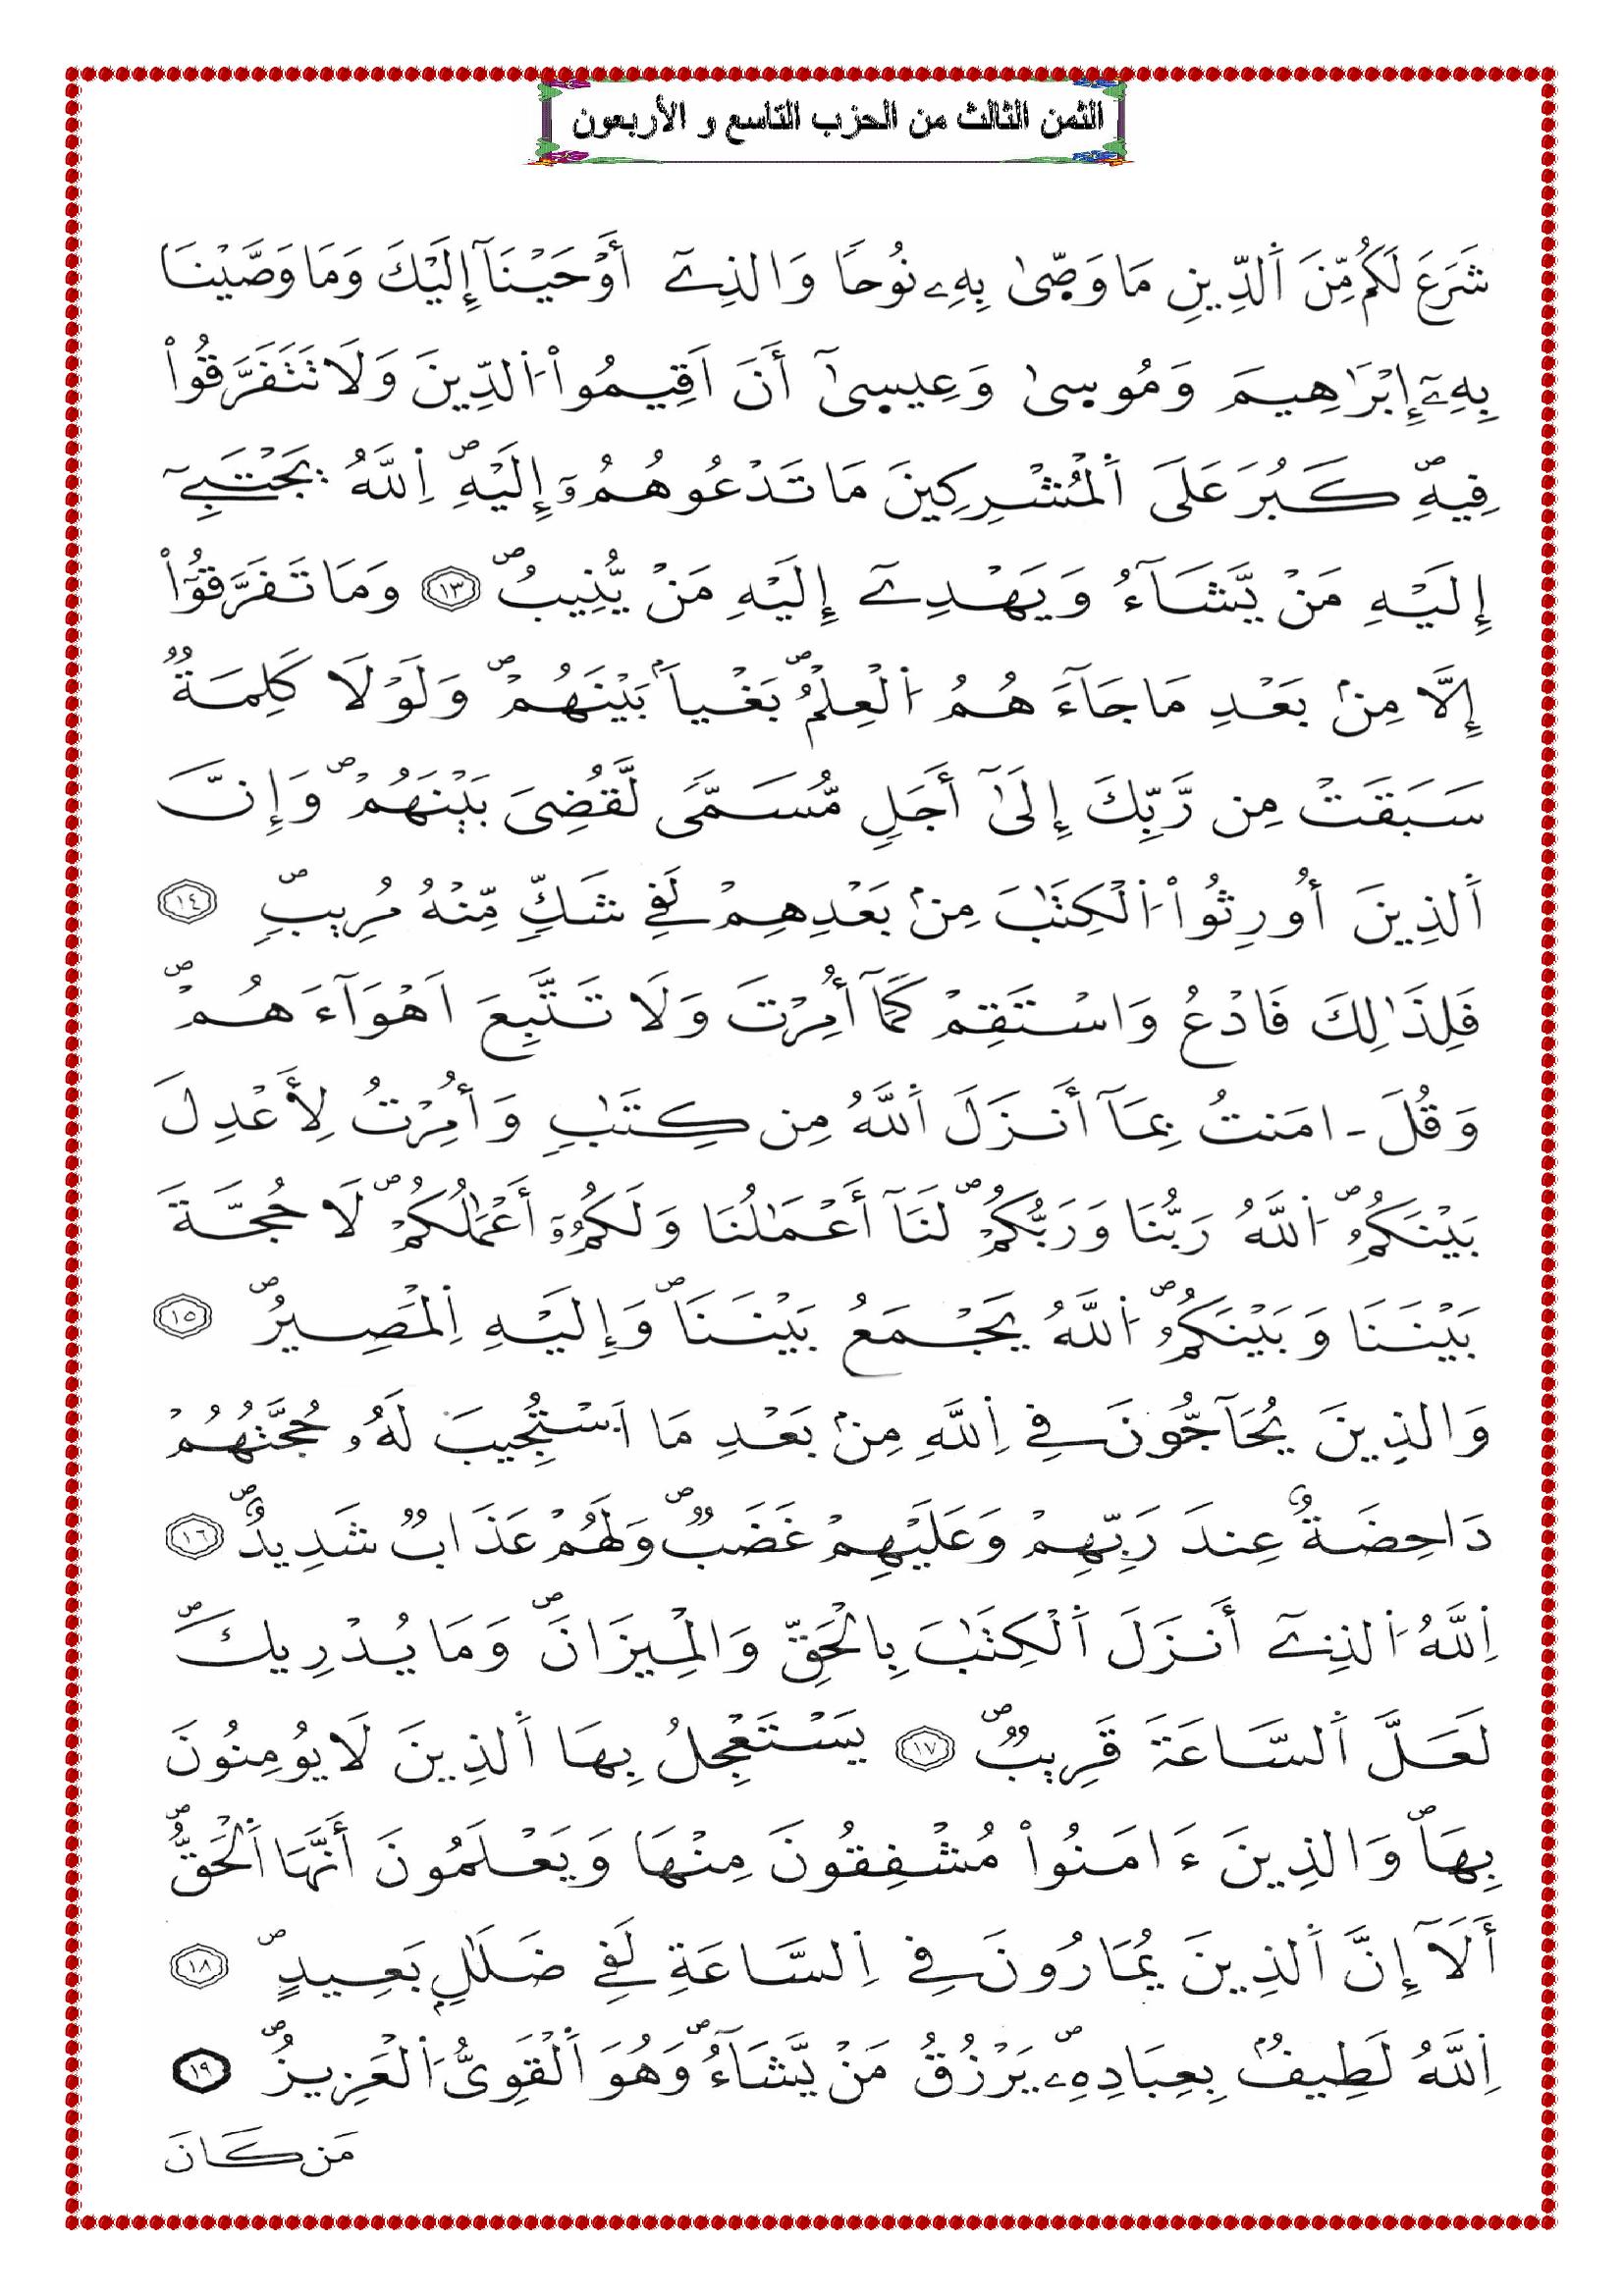 الثمن الثالث من الحزب التاسع و الأربعون
شَرَعَ لَكُم مِّنَ اَ۬لدِّينِ مَا وَصّ۪ىٰ بِهِۦ نُوحاٗ وَالذِےٓ أَوْحَيْنَآ إِلَيْكَ وَمَا وَصَّيْنَا
بِهِۦٓ إِبْرَٰهِيمَ وَمُوس۪ىٰ وَعِيس۪ىٰٓ أَنَ اَقِيمُواْ اُ۬لدِّينَ وَلَا تَتَفَرَّقُواْ
فِيهِۖ كَبُرَ عَلَى اَ۬لْمُشْرِكِينَ مَا تَدْعُوهُمُۥٓ إِلَيْهِۖ اِ۬للَّهُ يَجْتَبِےٓ
إِلَيْهِ مَنْ يَّشَآءُ وَيَهْدِےٓ إِلَيْهِ مَنْ يُّنِيبُۖ ١٣ وَمَا تَفَرَّقُوٓاْ
إِلَّا مِنۢ بَعْدِ مَا جَآءَهُمُ اُ۬لْعِلْمُۖ بَغْياَۢ بَيْنَهُمْۖ وَلَوْلَا كَلِمَةٞ
سَبَقَتْ مِن رَّبِّكَ إِلَىٰٓ أَجَلٖ مُّسَمّيٗ لَّقُضِيَ بَيْنَهُمْۖ وَإِنَّ
اَ۬لذِينَ أُورِثُواْ اُ۬لْكِتَٰبَ مِنۢ بَعْدِهِمْ لَفِے شَكّٖ مِّنْهُ مُرِيبٖۖ ١٤
فَلِذَٰلِكَ فَادْعُ وَاسْتَقِمْ كَمَآ أُمِرْتَ وَلَا تَتَّبِعَ اَهْوَآءَهُمْۖ
وَقُلَ ـ اٰمَنتُ بِمَآ أَنزَلَ اَ۬للَّهُ مِن كِتَٰبٖ وَأُمِرْتُ لِأَعْدِلَ
بَيْنَكُمُۖ اُ۬للَّهُ رَبُّنَا وَرَبُّكُمْۖ لَنَآ أَعْمَٰلُنَا وَلَكُمُۥٓ أَعْمَٰلُكُمْۖ لَا حُجَّةَ
بَيْنَنَا وَبَيْنَكُمُۖ اُ۬للَّهُ يَجْمَعُ بَيْنَنَاۖ وَإِلَيْهِ اِ۬لْمَصِيرُۖ ١٥
وَالذِينَ يُحَآجُّونَ فِے اِ۬للَّهِ مِنۢ بَعْدِ مَا اَ۟سْتُجِيبَ لَهُۥ حُجَّتُهُمْ
دَاحِضَةٌ عِندَ رَبِّهِمْ وَعَلَيْهِمْ غَضَبٞۖ وَلَهُمْ عَذَابٞ شَدِيدٌۖ ١٦
اِ۬للَّهُ اُ۬لذِےٓ أَنزَلَ اَ۬لْكِتَٰبَ بِالْحَقِّ وَالْمِيزَانَۖ وَمَا يُدْرِيكَۖ
لَعَلَّ اَ۬لسَّاعَةَ قَرِيبٞۖ ١٧ يَسْتَعْجِلُ بِهَا اَ۬لذِينَ لَا يُومِنُونَ
بِهَاۖ وَالذِينَ ءَامَنُواْ مُشْفِقُونَ مِنْهَا وَيَعْلَمُونَ أَنَّهَا اَ۬لْحَقُّۖ
أَلَآ إِنَّ اَ۬لذِينَ يُمَارُونَ فِے اِ۬لسَّاعَةِ لَفِے ضَلَٰلِۢ بَعِيدٍۖ ١٨
اِ۬للَّهُ لَطِيفُۢ بِعِبَادِهِۦۖ يَرْزُقُ مَنْ يَّشَآءُۖ وَهُوَ اَ۬لْقَوِيُّ اُ۬لْعَزِيزُۖ ١٩
مَن كَانَ